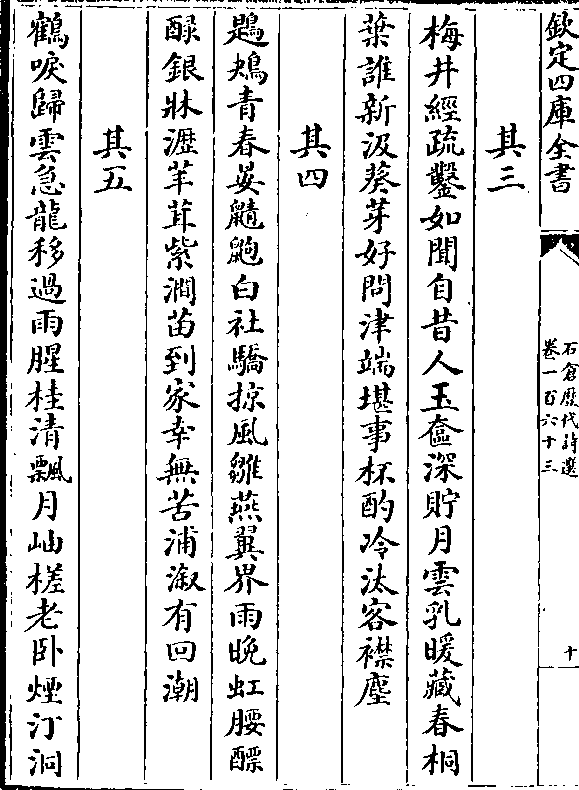 欽定四庫全書
石倉歷代詩選
卷一百六十三
十
其三
梅井經疏鑿如聞自昔人玉奩深貯月雲乳暖藏春桐
葉誰新汲葵芽好問津端堪事杯酌冷汰客襟塵
其四
鶗鴂青春晏白社驕掠風雛燕翼界雨晚虹腰醥
醁銀牀瀝羊茸紫澗苗到家幸無苦浦漵有回潮
其五
鶴唳歸雲急龍移過雨腥桂清飄月岫槎老卧煙汀洞